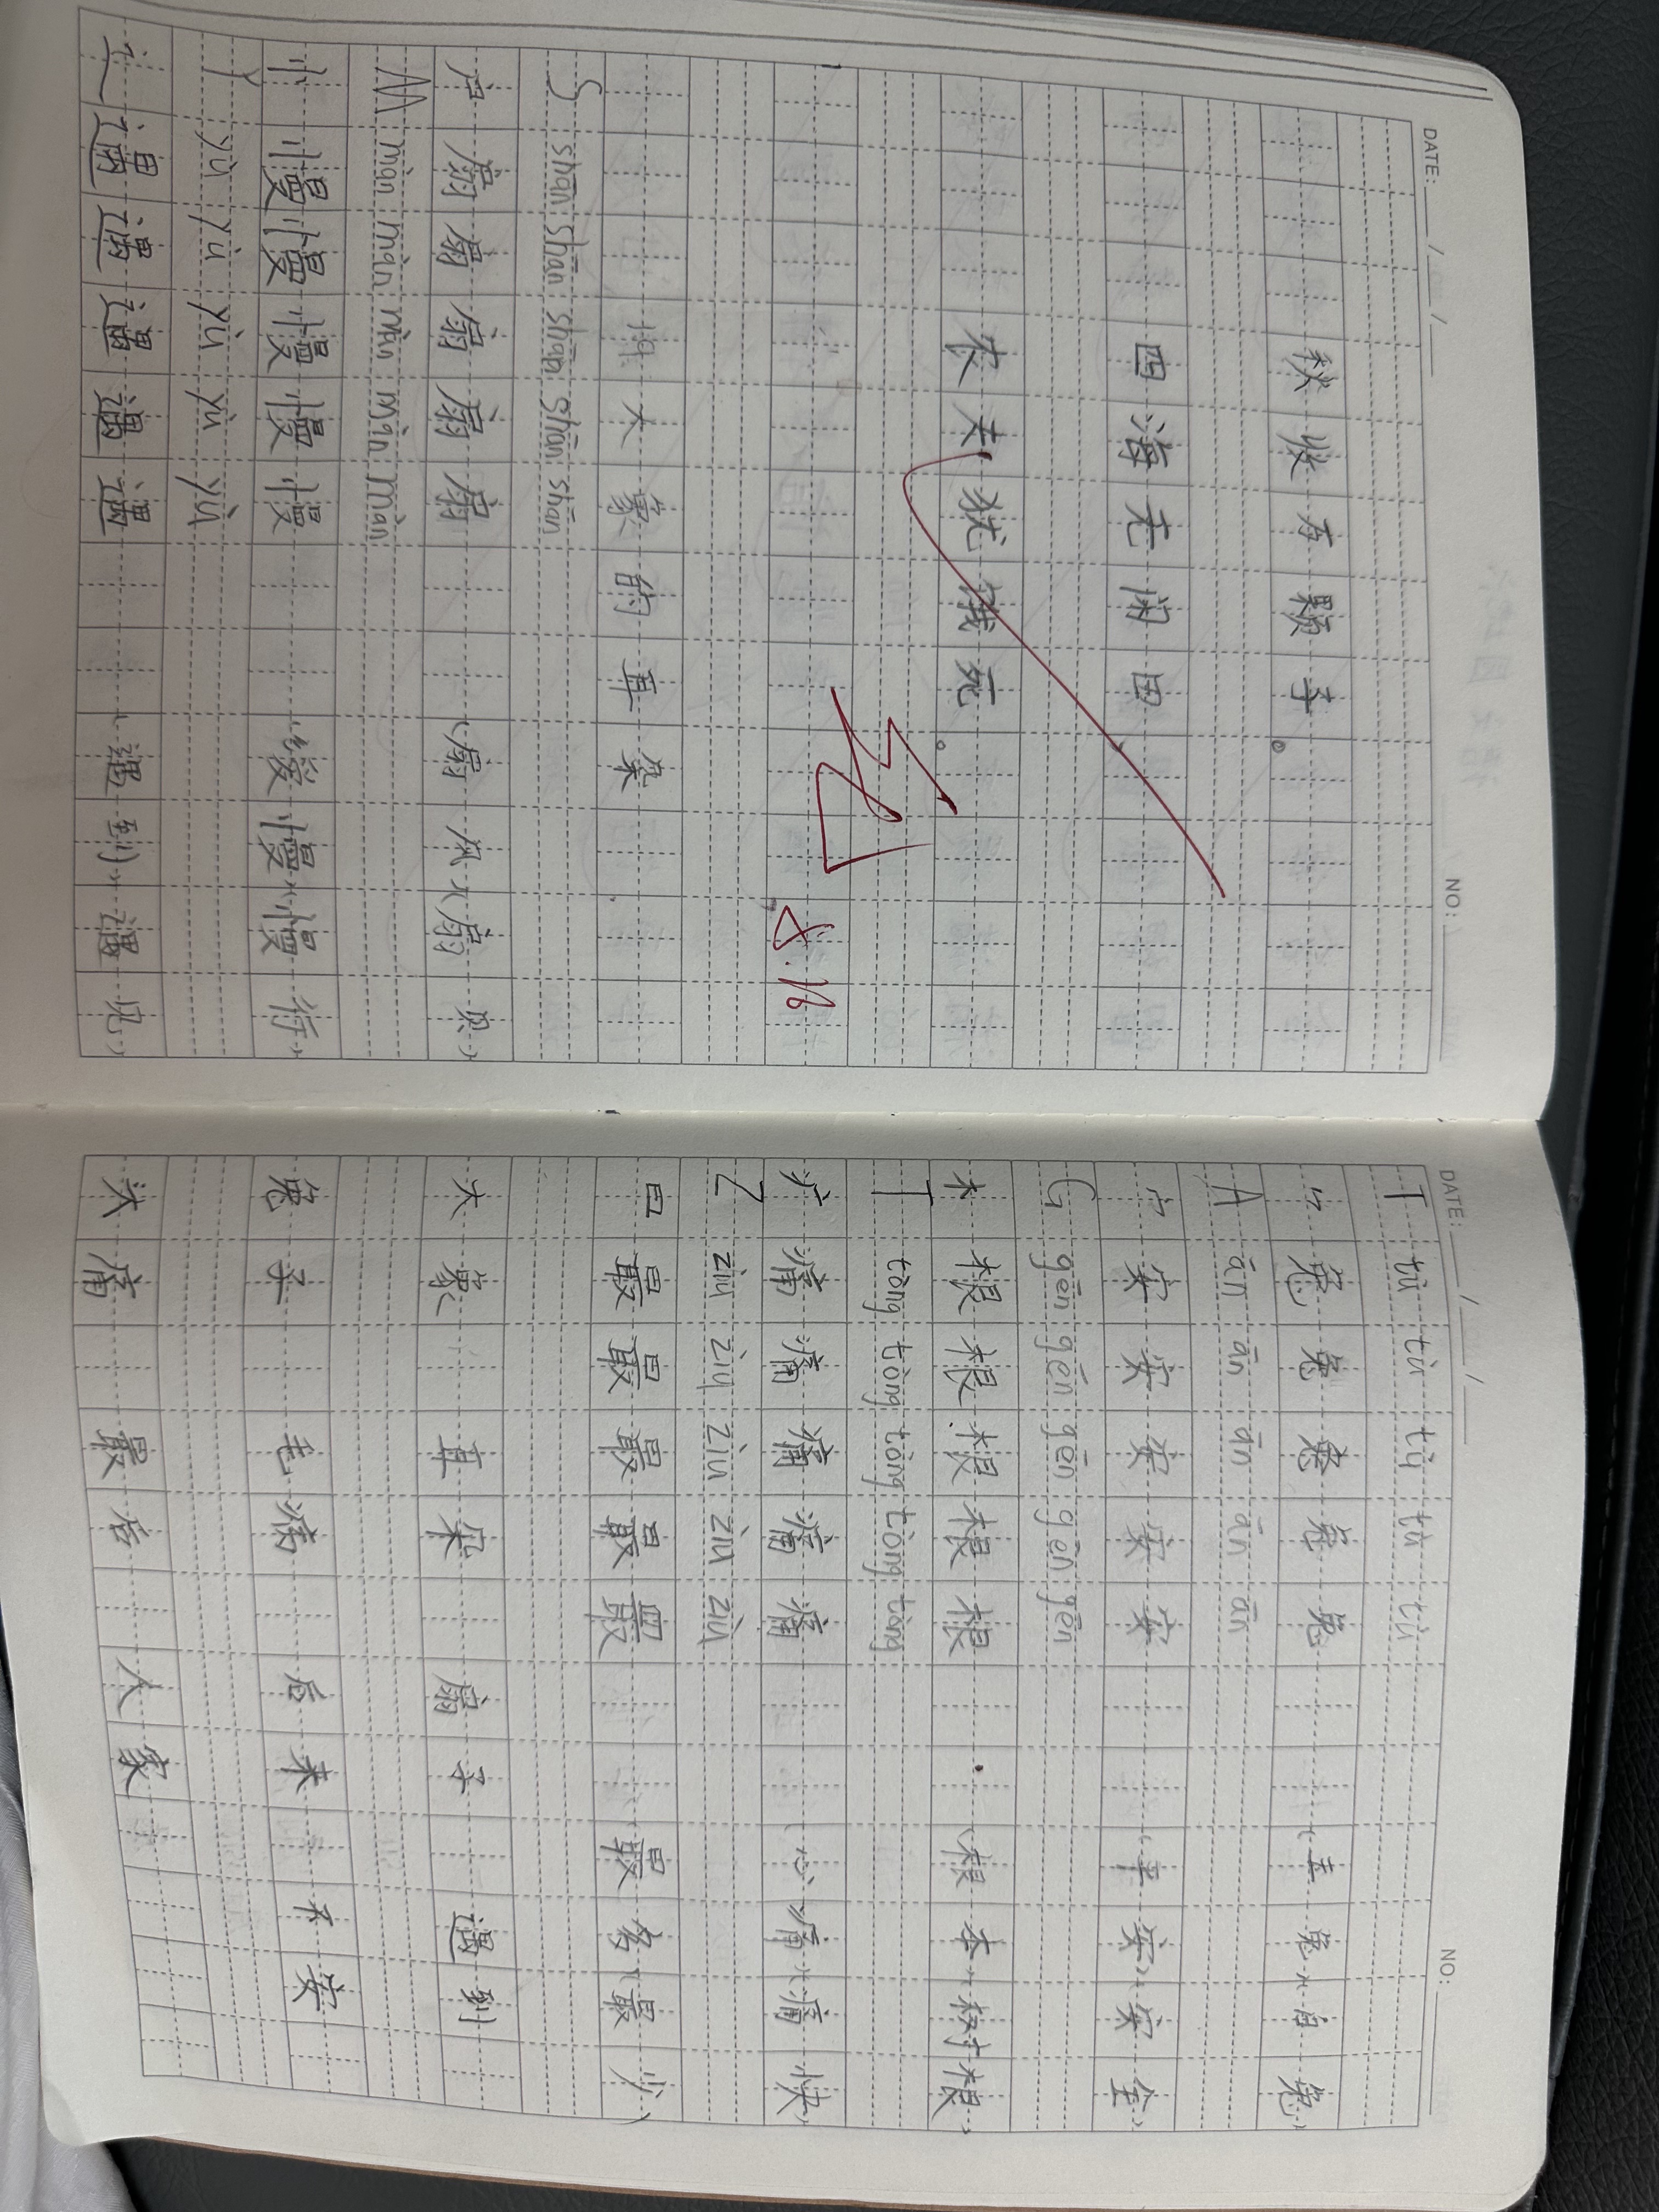 DATE: / / NO:
秋收存颗子。
四海无闲田
农夫犹饿死。
8.16
19 大象的耳朵
S shān shān shān shān shān
户 扇 扇 扇 扇 扇 （扇风）（扇贝）
M màn màn màn màn màn
忄 慢 慢 慢 慢 慢 （缓慢）（慢行）
Y yù yù yù yù yù
辶 遇 遇 遇 遇 遇 （遇到）（遇见）
DATE: / / NO:
T tù tù tù tù tù
⺈ 兔 兔 兔 兔 兔 （玉兔）（白兔）
A ān ān ān ān ān
宀 安 安 安 安 安 （平安）（安全）
G gēn gēn gēn gēn gēn
木 根 根 根 根 根 （根本）（树根）
T tòng tòng tòng tòng tòng
疒 痛 痛 痛 痛 痛 （心痛）（痛快）
Z ziù ziù ziù ziù ziù
曰 最 最 最 最 最 （最多）（最少）
大象 耳朵 扇子 遇到
兔子 毛病 后来 不安
头痛 最后 人家